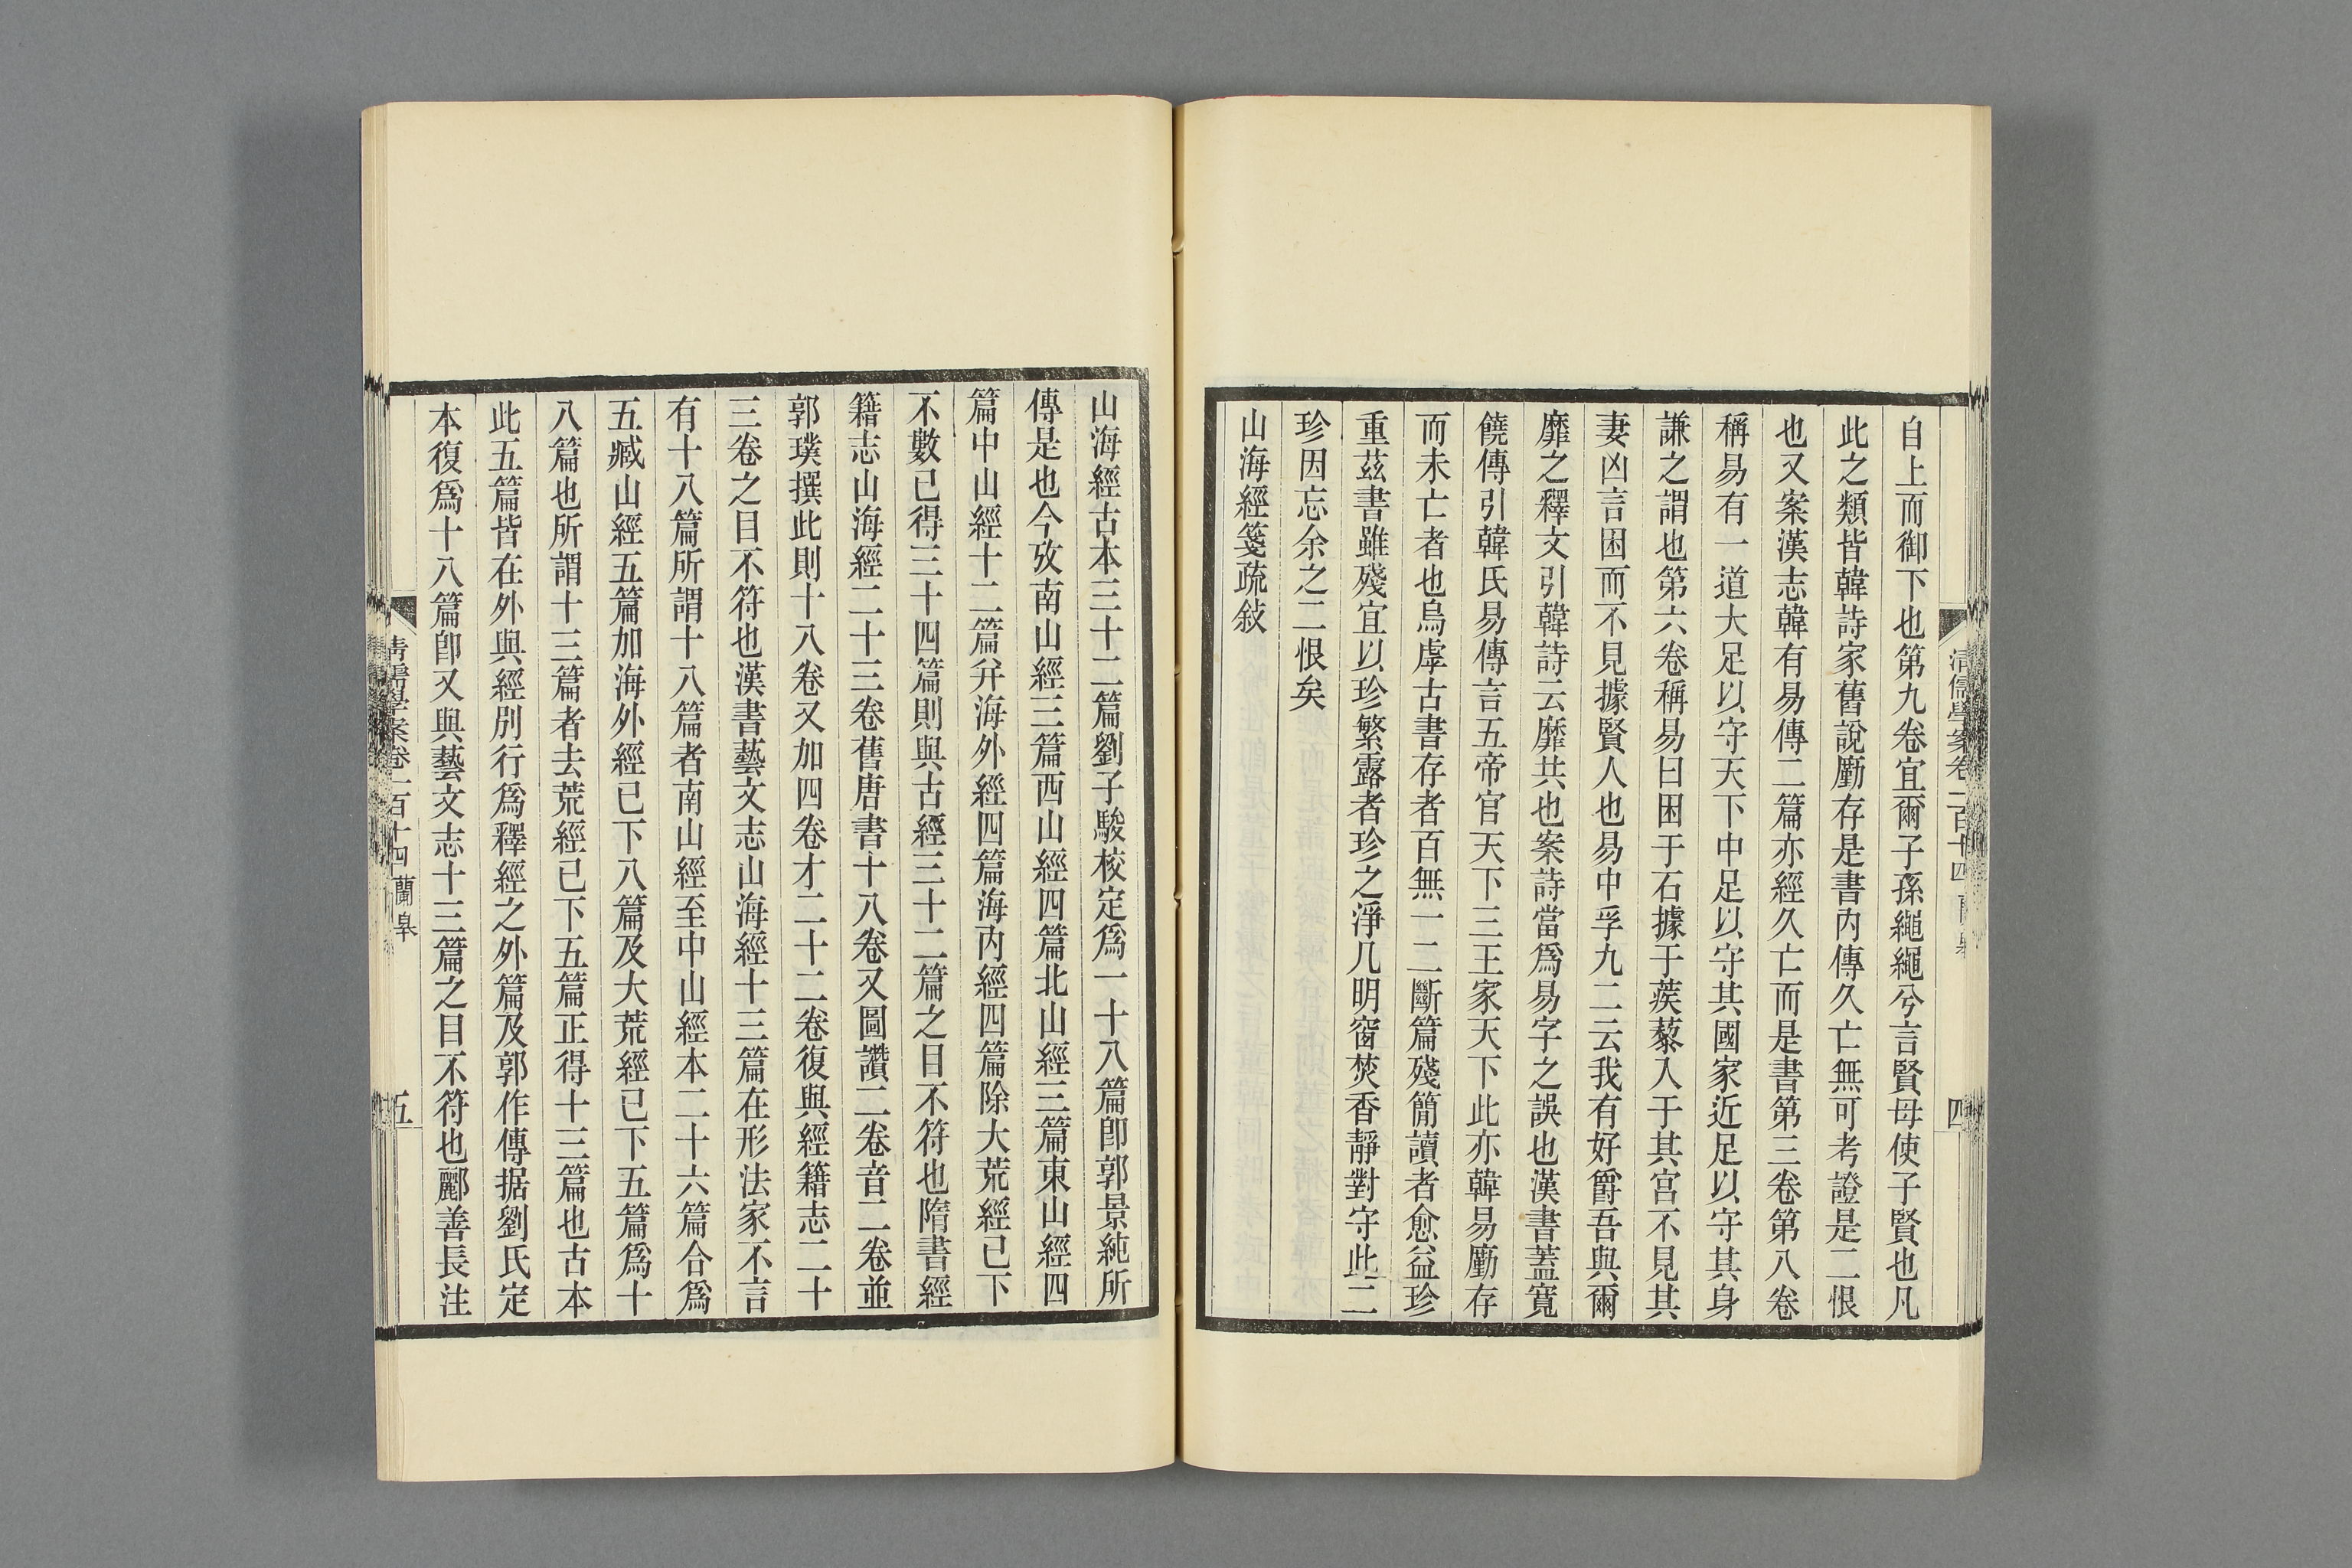 自上而御下也第九卷宜爾子孫繩繩兮言賢母使子賢也凡
此之類皆韓詩家舊說廑存是書內傳久亡無可考證是二恨
也又案漢志韓有易傳二篇亦經久亡而是書第三卷第八卷
稱易有一道大足以守天下中足以守其國家近足以守其身
謙之謂也第六卷稱易曰困于石據于蒺藜入于其宮不見其
妻凶言困而不見據賢人也易中孚九二云我有好爵吾與爾
靡之釋文引韓詩云靡共也案詩當爲易字之誤也漢書蓋寬
饒傳引韓氏易傳言五帝官天下三王家天下此亦韓易廑存
而未亡者也烏虖古書存者百無一二斷篇殘簡讀者愈益珍
重茲書雖殘宜以珍繁露者珍之淨几明窗焚香靜對守此二
珍因忘余之二恨矣
山海經箋疏敍
清儒學案卷一百十四
四
山海經古本三十二篇劉子駿校定爲一十八篇卽郭景純所
傳是也今攷南山經三篇西山經四篇北山經三篇東山經四
篇中山經十二篇幷海外經四篇海內經四篇除大荒經已下
不數已得三十四篇則與古經三十二篇之目不符也隋書經
籍志山海經二十三卷舊唐書十八卷又圖讚二卷音二卷並
郭璞撰此則十八卷又加四卷才二十二卷復與經籍志二十
三卷之目不符也漢書藝文志山海經十三篇在形法家不言
有十八篇所謂十八篇者南山經至中山經本二十六篇合爲
五臧山經五篇加海外經已下八篇及大荒經已下五篇爲十
八篇也所謂十三篇者去荒經已下五篇正得十三篇也古本
此五篇皆在外與經別行爲釋經之外篇及郭作傳据劉氏定
本復爲十八篇卽又與藝文志十三篇之目不符也酈善長注
清儒學案卷一百十四 蘭皋
五